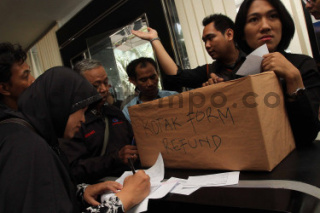 tempo.co
KOTAK FORM
REFUND